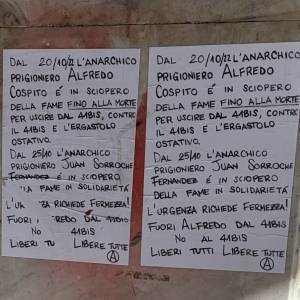 DAL 20/10/22 L'ANARCHICO
PRIGIONIERO ALFREDO
COSPITO É IN SCIOPERO
DELLA FAME FINO ALLA MORTE
PER USCIRE DAL 41BIS, CONTRO
IL 41BIS E L'ERGASTOLO
OSTATIVO.
DAL 25/10 L'ANARCHICO
PRIGIONIERO JUAN SORROCHE
FERNANDEZ É IN SCIOPERO
FAME IN SOLIDARIETÀ
RICHIEDE FERMEZZA!
FUORI DAL 41BIS
NO 41BIS
LIBERI LIBERE TUTTE
A
DAL 20/10/22 L'ANARCHICO
PRIGIONIERO ALFREDO
COSPITO É IN SCIOPERO
DELLA FAME FINO ALLA MORTE
PER USCIRE DAL 41BIS, CONTRO
IL 41BIS E L'ERGASTOLO
OSTATIVO.
DAL 25/10 L'ANARCHICO
PRIGIONIERO JUAN SORROCHE
FERNANDEZ É IN SCIOPERO
DELLA FAME IN SOLIDARIETÀ
L'URGENZA RICHIEDE FERMEZZA!
FUORI ALFREDO DAL 41BIS
NO AL 41BIS
LIBERI TUTTI LIBERE TUTTE
A